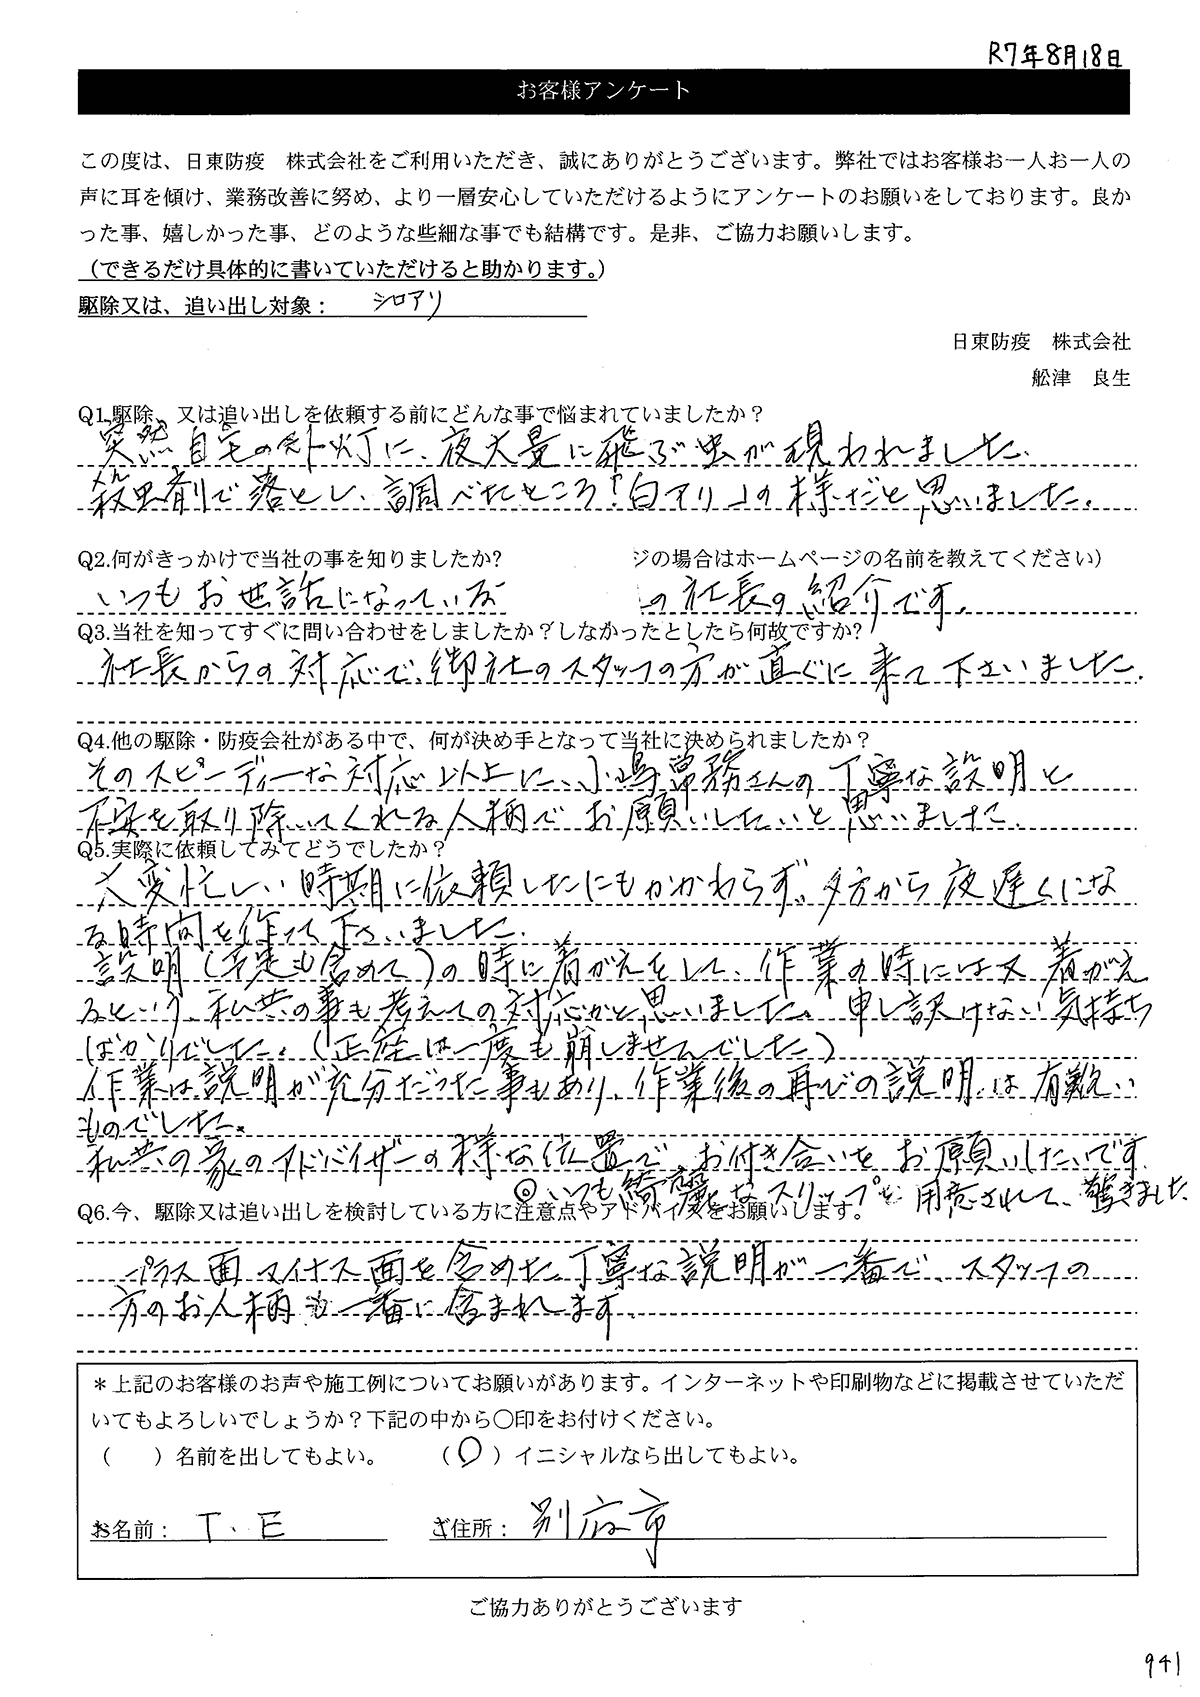 R7年8月18日
お客様アンケート
この度は、日東防疫　株式会社をご利用いただき、誠にありがとうございます。弊社ではお客様お一人お一人の
声に耳を傾け、業務改善に努め、より一層安心していただけるようにアンケートのお願いをしております。良か
った事、嬉しかった事、どのような些細な事でも結構です。是非、ご協力お願いします。
（できるだけ具体的に書いていただけると助かります。）
駆除又は、追い出し対象： シロアリ
日東防疫　株式会社
舩津　良生
Q1.駆除、又は追い出しを依頼する前にどんな事で悩まれていましたか？
突然自宅の外灯に、夜大量に飛ぶ虫が現われました.
殺虫剤で落とし、調べたところ「白アリ」の様だと思いました.
Q2.何がきっかけで当社の事を知りましたか? ジの場合はホームページの名前を教えてください）
いつもお世話になっている の社長の紹介です.
Q3.当社を知ってすぐに問い合わせをしましたか？しなかったとしたら何故ですか?
社長からの対応で、御社のスタッフの方が直ぐに来て下さいました.
Q4.他の駆除・防疫会社がある中で、何が決め手となって当社に決められましたか？
そのスピーディーな対応以上に、小嶋常務さんの丁寧な説明と
不安を取り除いてくれる人柄でお願いしたいと思いました.
Q5.実際に依頼してみてどうでしたか？
大変忙しい時期に依頼したにもかかわらず、夕方から夜遅くにな
る時間を作って下さいました.
説明(予定も含めて)の時に着がえをして、作業の時には又着がえ
るという、私共の事も考えての対応かと思いました。申し訳けない気持ち
ばかりでした。(正座は一度も崩しませんでした)
作業は説明が充分だった事もあり、作業後の再びの説明は有難い
ものでした。
私共の家のアドバイザーの様な位置で、お付き合いをお願いしたいです.
◎いつも綺麗なスリッパを用意されて、驚きました
Q6.今、駆除又は追い出しを検討している方に注意点やアドバイスをお願いします。
プラス面マイナス面を含めた丁寧な説明が一番で、スタッフの
方のお人柄も一番に含まれます.
＊上記のお客様のお声や施工例についてお願いがあります。インターネットや印刷物などに掲載させていただ
いてもよろしいでしょうか？下記の中から〇印をお付けください。
（　　）名前を出してもよい。　（〇）イニシャルなら出してもよい。
お名前： T.E ご住所： 別府市
ご協力ありがとうございます
941